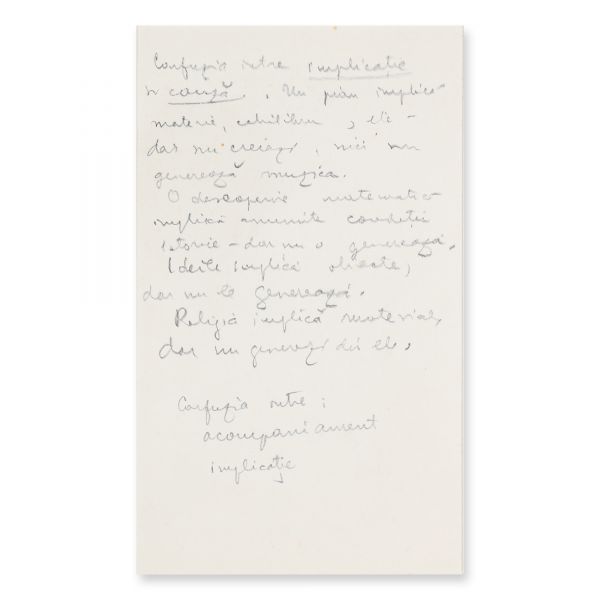 Confuzia între implicație
și cauză. Un pian implică
materie, echilibru, etc –
dar nu creiază, nici nu
generează muzica.
O descoperire matematică
implică anumite condiții
istorice – dar nu o generează.
Ideile implică obiecte,
dar nu le generează.
Religia implică material,
dar nu generază din ele.
Confuzia între:
acompaniament
implicație